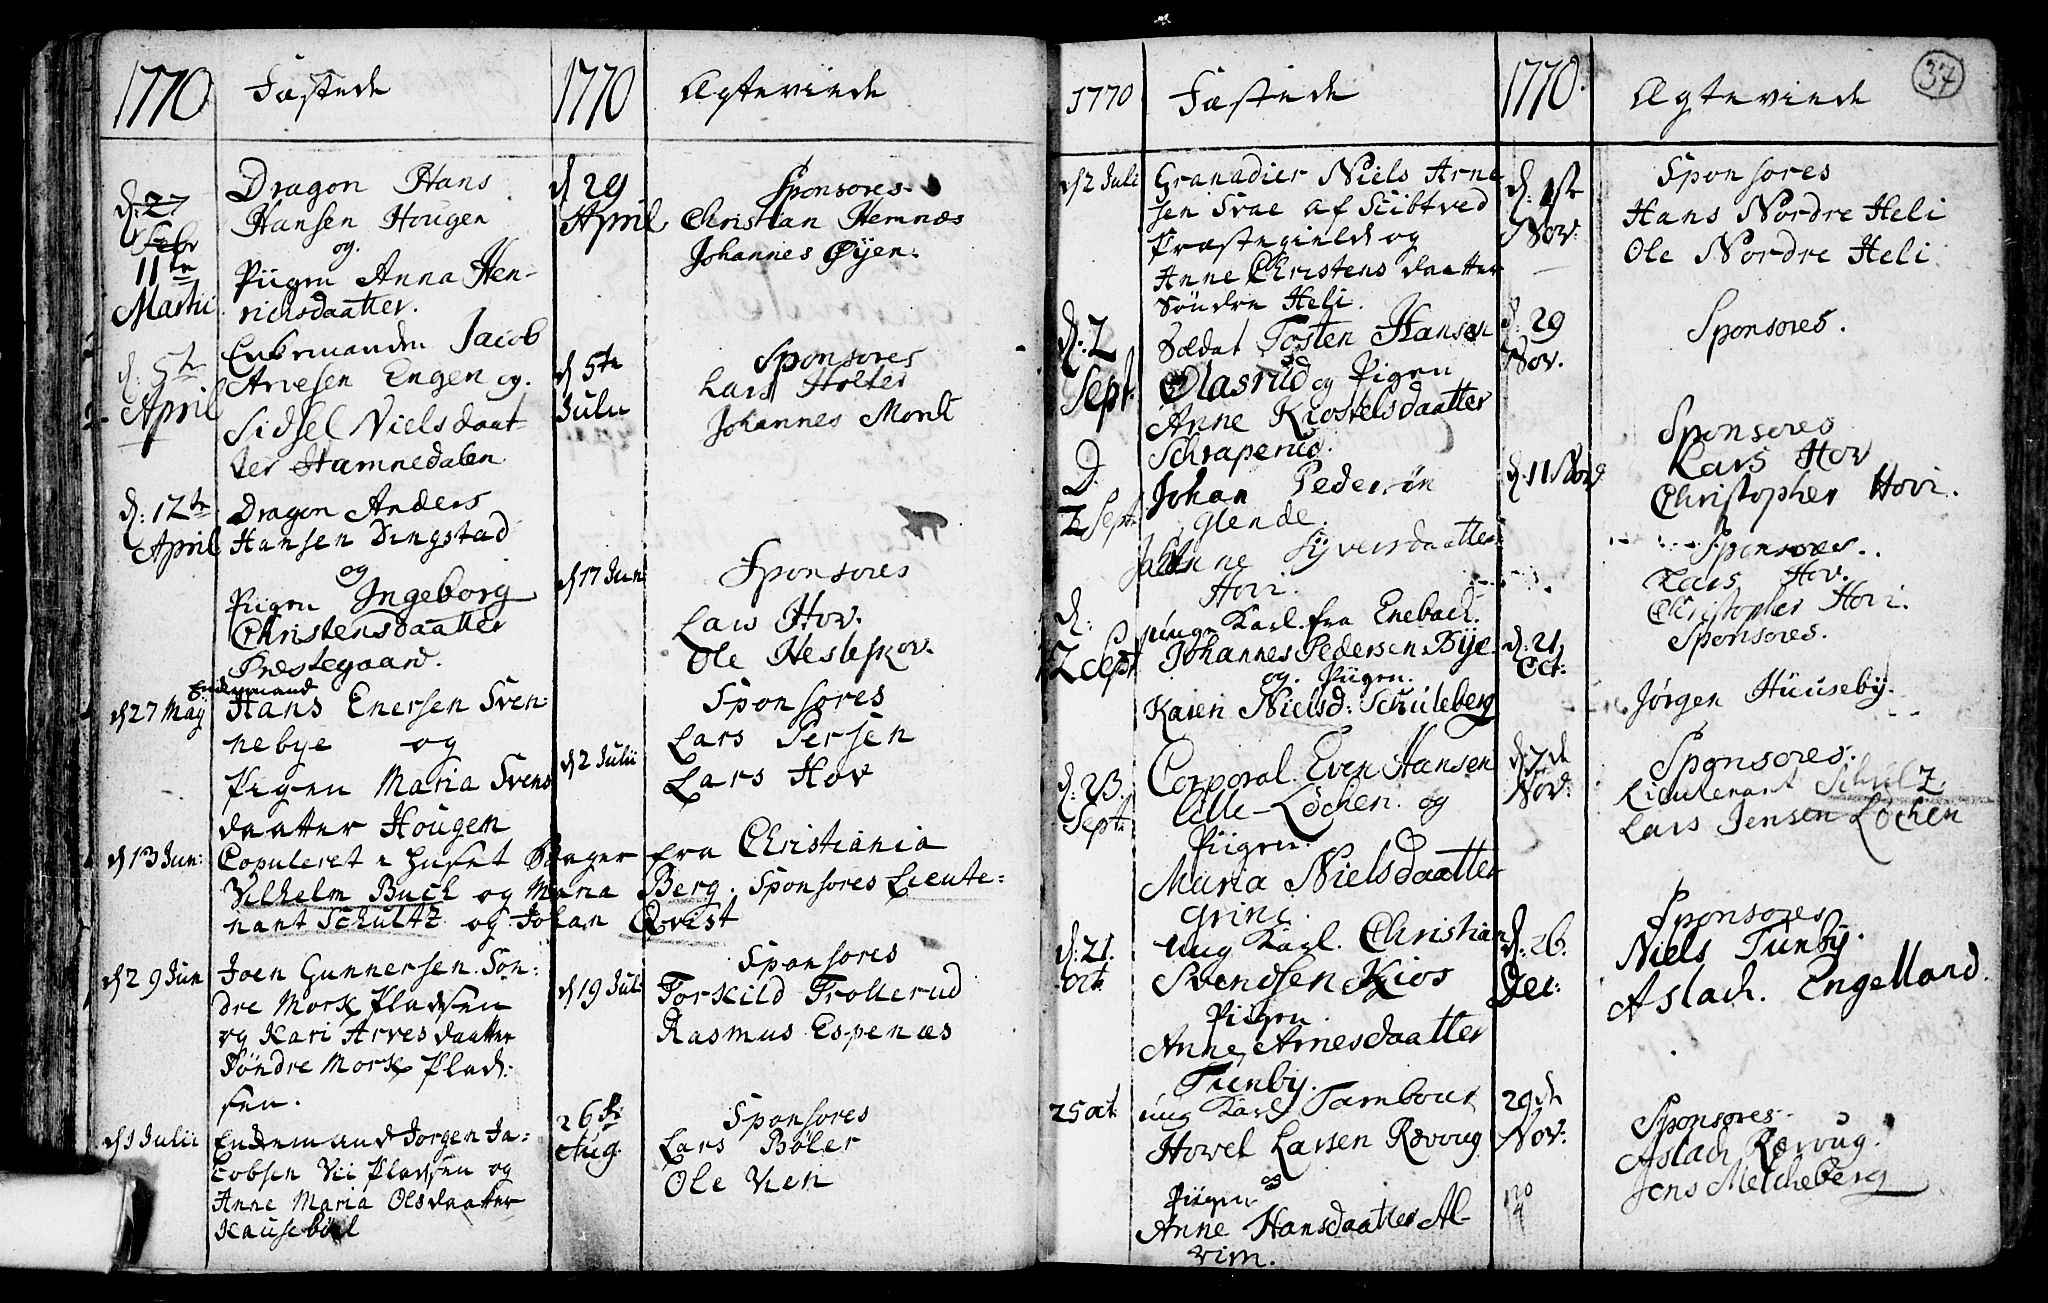 1770
Fæstede
1770
Ægteviede
d: 27
Febr
11te
Martii
Dragon Hans
Hansen Hougen
og
Piigen Anna Hen-
richsdaatter.
d 29
April
Sponsores
Christian Hemnæs
Johannes Øÿen.
d: 5te
April
Enkemanden Jacob
Arvesen Engen og
Sidsel Nielsdaat-
ter Hamnedalen
d 5te
Julii
Sponsores
Lars Holter
Johannes Mork
d: 12te
April
Dragon Anders
Hansen Dingstad
og
Piigen Ingeborg
Christensdaatter
Præstegaard.
d 17 Juni
Sponsores
Lars Hov.
Ole Hesleskov.
d 27 Maÿ
Enkemand
Hans Enersen Sven-
nebye og
Pigen Maria Svens
daatter Hougen
d 2 Julii
Sponsores
Lars Persen
Lars Hov
d 13 Jun:
Copuleret i Huset Borger fra Christiania
Vilhelm Buch og Maria Berg. Sponsores Lieute-
nant Schultz og Johan Qvist
d 29 Jun
Joen Gunnersen Søn-
dre Mork Pladsen
og Kari Arvesdaatter
Søndre Mork Plad-
sen.
d 19 Jul:
Sponsores
Torkild Trollerud
Rasmus Espenæs
d 1 Julii
Enkemand Jørgen Ja-
cobsen Vii Pladsen og
Anne Maria Olsdaatter
Kausebøl
26de
Aug.
Sponsores
Lars Bøler
Ole Vien
37
1770
Fæstede
1770
Ægteviede
d 2 Juli
Granadier Niels Arne
sen Svae af Schibtved
Præstegield og
Anne Christensdaatter
Søndre Heli.
d: 1ste
Nov:
Sponsores
Hans Nordre Heli
Ole Nordre Heli
d: 2
Sept:
Soldat Tosten Hansen
Olasrud og Pigen
Anne Kiostelsdaatter
Schraperud.
d: 29
Nov.
Sponsores.
D.
2 Sept:
Johan Pedersøn
Glende.
Anne Syversdaatter
Hovi.
d: 11 Nov
Sponsores
Lars Hov
Christopher Hovi.
Sponsores.
Lars Hov.
Christopher Hovi.
d:
2 Sept
unge Karl fra Enebach.
Johannes Pedersen Bye
og Piigen.
Karen Nielsd: Schuleberg
d: 21
Oct:
Sponsores.
Jørgen Huuseby.
d: 23
Sept:
Corporal Even Hansen
Lille-Løchen og
Piigen
Maria Nielsdaatter
Grini.
d: 7de
Nov:
Sponsores.
Lieutenant Schulz
Lars Jensen Løchen
d: 21.
oct:
ung Karl. Christian
Svendsen Kios
Piigen.
Anne Arnesdaatter
Tunby.
d: 26.
Dec:
Sponsores
Niels Tunby.
Aslach Engelland.
25 oct:
ung Karl Tambour
Hovel Larsen Rævoug
og
Piigen
Anne Hansdaatter Al-
vim.
29de
Nov:
Sponsores.
Aslach Rævoug.
Jens Melcheberg